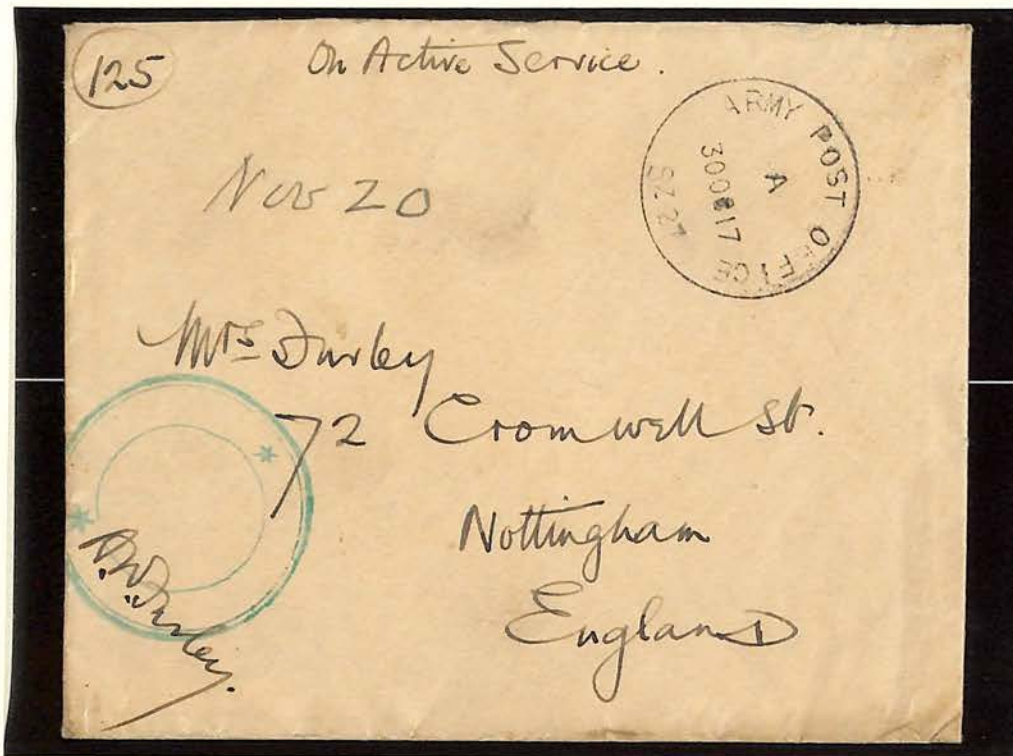 125
On Active Service.
ARMY POST OFFICE
A
30 OC 17
SZ 27
Nov 20
Mrs Durley
72 Cromwell St.
Nottingham
England
Durley.